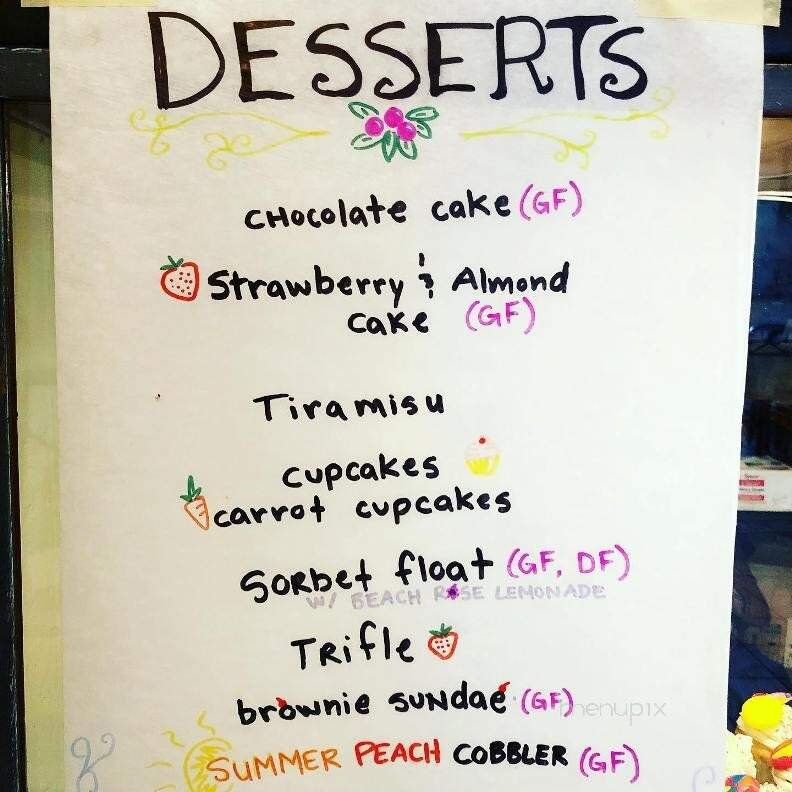 DESSERTS
CHocolate cake (GF)
Strawberry & Almond
cake (GF)
Tiramisu
cupcakes
carrot cupcakes
SORbet float (GF, DF)
W/ BEACH ROSE LEMONADE
TRifle
brownie SUNdae (GF)
menupix
SUMMER PEACH COBBLER (GF)